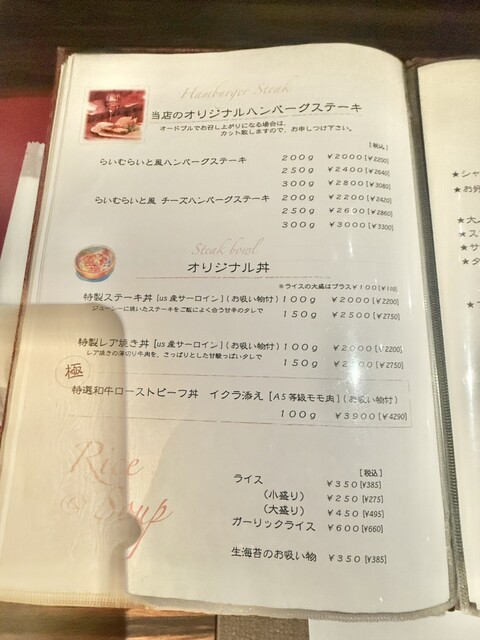 Hamburger Steak
当店のオリジナルハンバーグステーキ
オードブルでお召し上がりになる場合は、
カット致しますので、お申しつけ下さい。
[税込]
らいむらいと風ハンバーグステーキ 200g ¥2000[¥2200]
250g ¥2400[¥2640]
300g ¥2800[¥3080]
らいむらいと風 チーズハンバーグステーキ 200g ¥2200[¥2420]
250g ¥2600[¥2860]
300g ¥3000[¥3300]
Steak bowl
オリジナル丼
※ライスの大盛はプラス¥100[¥110]
特製ステーキ丼 [us産サーロイン](お吸い物付) 100g ¥2000[¥2200]
ジューシーに焼いたステーキをご飯によく合う甘辛のタレで 150g ¥2500[¥2750]
特製レア焼き丼 [us産サーロイン](お吸い物付) 100g ¥2000[¥2200]
レア焼きの薄切り牛肉を、さっぱりとした甘酸っぱいタレで 150g ¥2500[¥2750]
極
特選和牛ローストビーフ丼 イクラ添え [A5等級モモ肉](お吸い物付)
100g ¥3900[¥4290]
Rice
& Soup
[税込]
ライス ¥350[¥385]
(小盛り) ¥250[¥275]
(大盛り) ¥450[¥495]
ガーリックライス ¥600[¥660]
生海苔のお吸い物 ¥350[¥385]
★シャ
★お好
★大
★ス
★サ
★タ